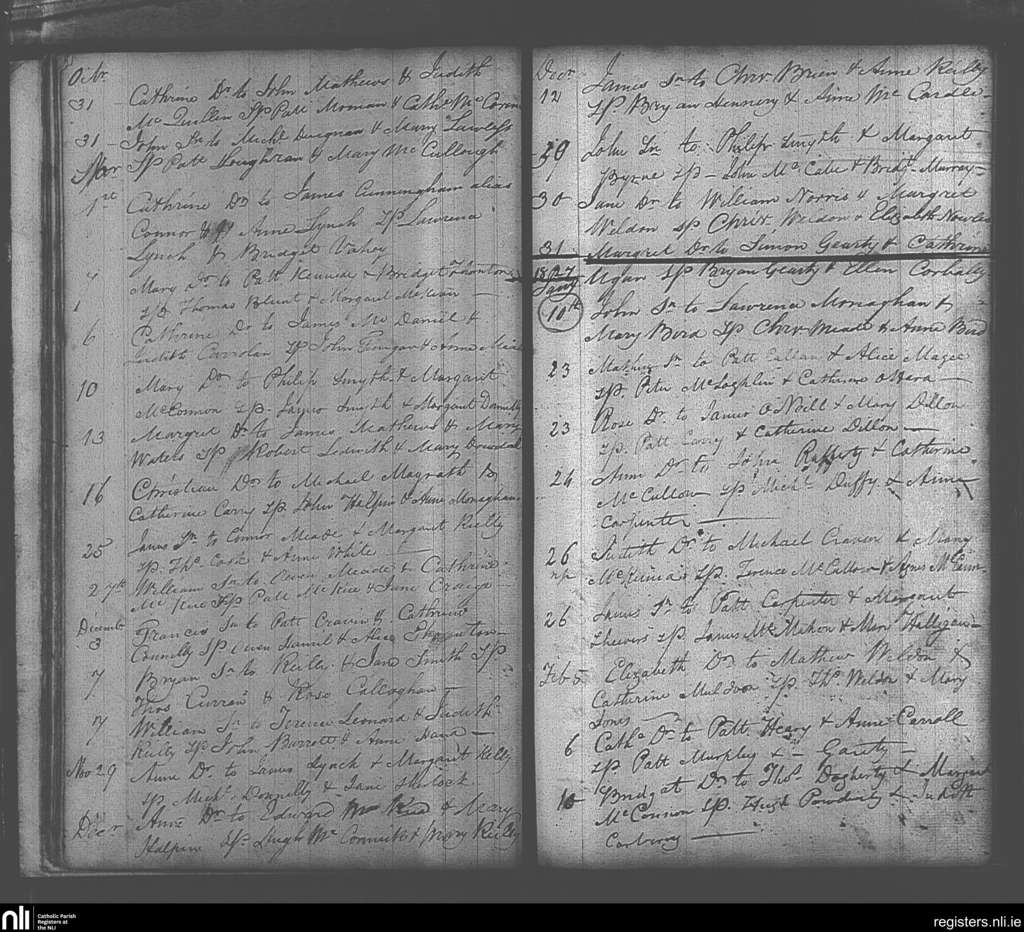 Octr
31 Cathrine Dr to John Mathews & Judith
McQuillen Sp Patt Moman & Cathe McCormi
31 John Sn to Michl Duignan & Mary Lawless
Novr Sp Patt Loughran & Mary McCullough
1st Cathrine Dr to James Cunningham alias
Connor & Anne Lynch Sp Lawrence
Lynch & Bridget Vahey
4 Mary Dr to Patt Kennedae & Bridget Thornton
Sp Thomas Blunt & Margaret McKeun
6 Cathrine Dr to James McDaniel &
Judith Carrolan Sp John Finegan & Anne
10 Mary Dr to Philip Smyth & Margaret
McConnon Sp James Smith & Margaret Donnelly
13 Margret Dr to James Mathews & Mary
Waters Sp Robert Ledwith & Mary Dowdal
16 Christian Dr to Michael Magrath &
Catherine Carry Sp John Halpin & Anne Monaghan
25 James Sn to Connor Meade & Margaret Rielly
Sp Thos Cook & Anne White
27th William Sn to Owen Meade & Cathrine
McKue Sp Patt McKice & Jane Craige
December
3 Francis Sn to Patt Craven & Cathrine
Connelly Sp Owen Daniel & Alice Thornton
7 Bryan Sn to Reille & Jane Smith Sp
Thos Curran & Rose Callaghan
7 William Sn to Terence Leonard & Judith
Reilly Sp John Barrett & Anne Hand
Nov 29 Anne Dr to James Lynch & Margaret Kelly
Sp Michl Donnelly & Jane Sherlock
Decr Anne Dr to Edward & Mary
Halpin Sp Hugh McConnick & Mary Reilly
Decr James Sn to Chrisr Brien & Anne Reilly
12 Sp Bryan Dennery & Anne McCardle
29 John Sn to Philip Smyth & Margaret
Byrne Sp John McCabe & Bridgt Murray
30 Jane Dr to William Norris & Margret
Weldon Sp Christr Weldon & Elizabeth Nowlan
31 Margret Dr to Simon Gearty & Cathrine
1827 Ugan Sp Bryan Gearty & Ellen Corbally
Jany
10th John Sn to Lawrence Monaghan &
Mary Bird Sp Chrisr Meade & Anne Bird
23 Mathew Sn to Patt Callan & Alice Magee
Sp Peter McLoghlin & Catherine O Hara
23 Rose Dr to James O'Neill & Mary Dillon
Sp Patt & Catherine Dillon
24 Ann Dr to John Rafferty & Catherine
McCullow Sp Michl Duffy & Anne
Carpenter
26 Judith Dr to Michael Craven & Mary
McKinna Sp Terence McCullow & Agnes
26 James Sn to Patt Carpenter & Margaret
Chevers Sp James McMahon & Mary Halligan
Feb 5 Elizabeth Dr to Mathew Weldon &
Catherine Muldoon Sp Thos Weldon & Mary
Jones
6 Cathe Dr to Patt Heary & Anne Carroll
Sp Patt Murphy & Gaity
10 Bridgat Dr to Thos Dogherty & Margaret
McConnon Sp Hugh & Judith
Carberry
nli Catholic Parish
Registers at
the NLI
registers.nli.ie